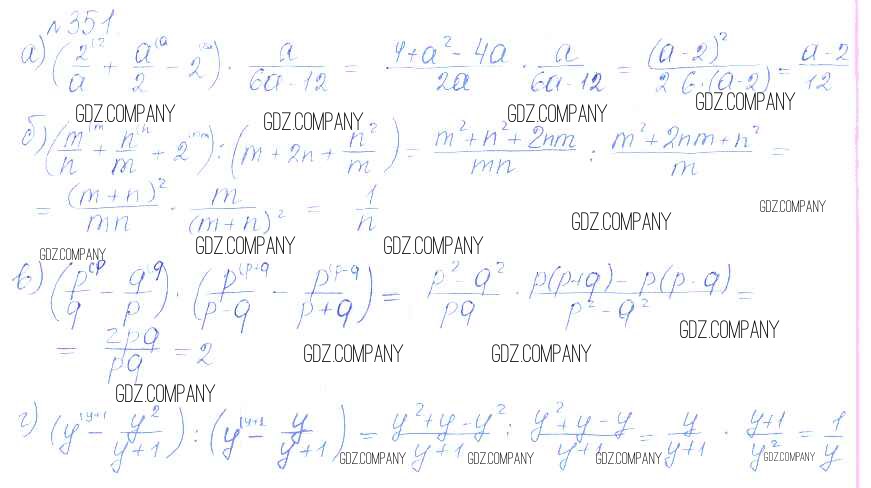 №351.
а) (2/a + a/2 - 2) · a/(6a-12) = (4+a²-4a)/2a · a/(6a-12) = (a-2)²/(2·6·(a-2)) = (a-2)/12
GDZ.COMPANY GDZ.COMPANY GDZ.COMPANY GDZ.COMPANY
б) (m/n + n/m + 2) : (m+2n+n²/m) = (m²+n²+2nm)/mn : (m²+2nm+n²)/m =
= (m+n)²/mn · m/(m+n)² = 1/n
GDZ.COMPANY GDZ.COMPANY
GDZ.COMPANY GDZ.COMPANY GDZ.COMPANY
в) (p/q - q/p) · (p/(p-q) - p/(p+q)) = (p²-q²)/pq · (p(p+q)-p(p-q))/(p²-q²) =
GDZ.COMPANY
= 2pq/pq = 2
GDZ.COMPANY GDZ.COMPANY
GDZ.COMPANY
г) (y - y²/(y+1)) : (y - y/(y+1)) = (y²+y-y²)/(y+1) : (y²+y-y)/(y+1) = y/(y+1) · (y+1)/y² = 1/y
GDZ.COMPANY GDZ.COMPANY GDZ.COMPANY GDZ.COMPANY